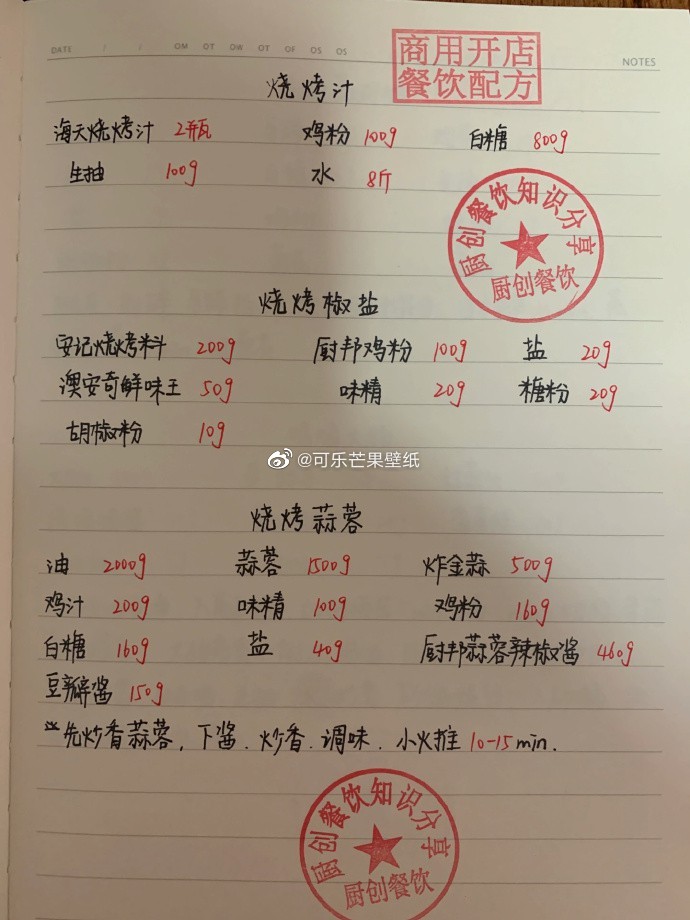 DATE / / OM OT OW OT OF OS OS
NOTES
商用开店
餐饮配方
烧烤汁
海天烧烤汁 2瓶 鸡粉 100g 白糖 800g
生抽 100g 水 8斤
厨创餐饮知识分享
厨创餐饮
烧烤椒盐
安记烧烤料 200g 厨邦鸡粉 100g 盐 20g
澳安奇鲜味王 50g 味精 20g 糖粉 20g
胡椒粉 10g
@可乐芒果壁纸
烧烤蒜蓉
油 2000g 蒜蓉 1500g 炸金蒜 500g
鸡汁 200g 味精 100g 鸡粉 160g
白糖 160g 盐 40g 厨邦蒜蓉辣椒酱 460g
豆瓣酱 150g
先炒香蒜蓉，下酱.炒香.调味.小火推 10-15min.
厨创餐饮知识分享
厨创餐饮